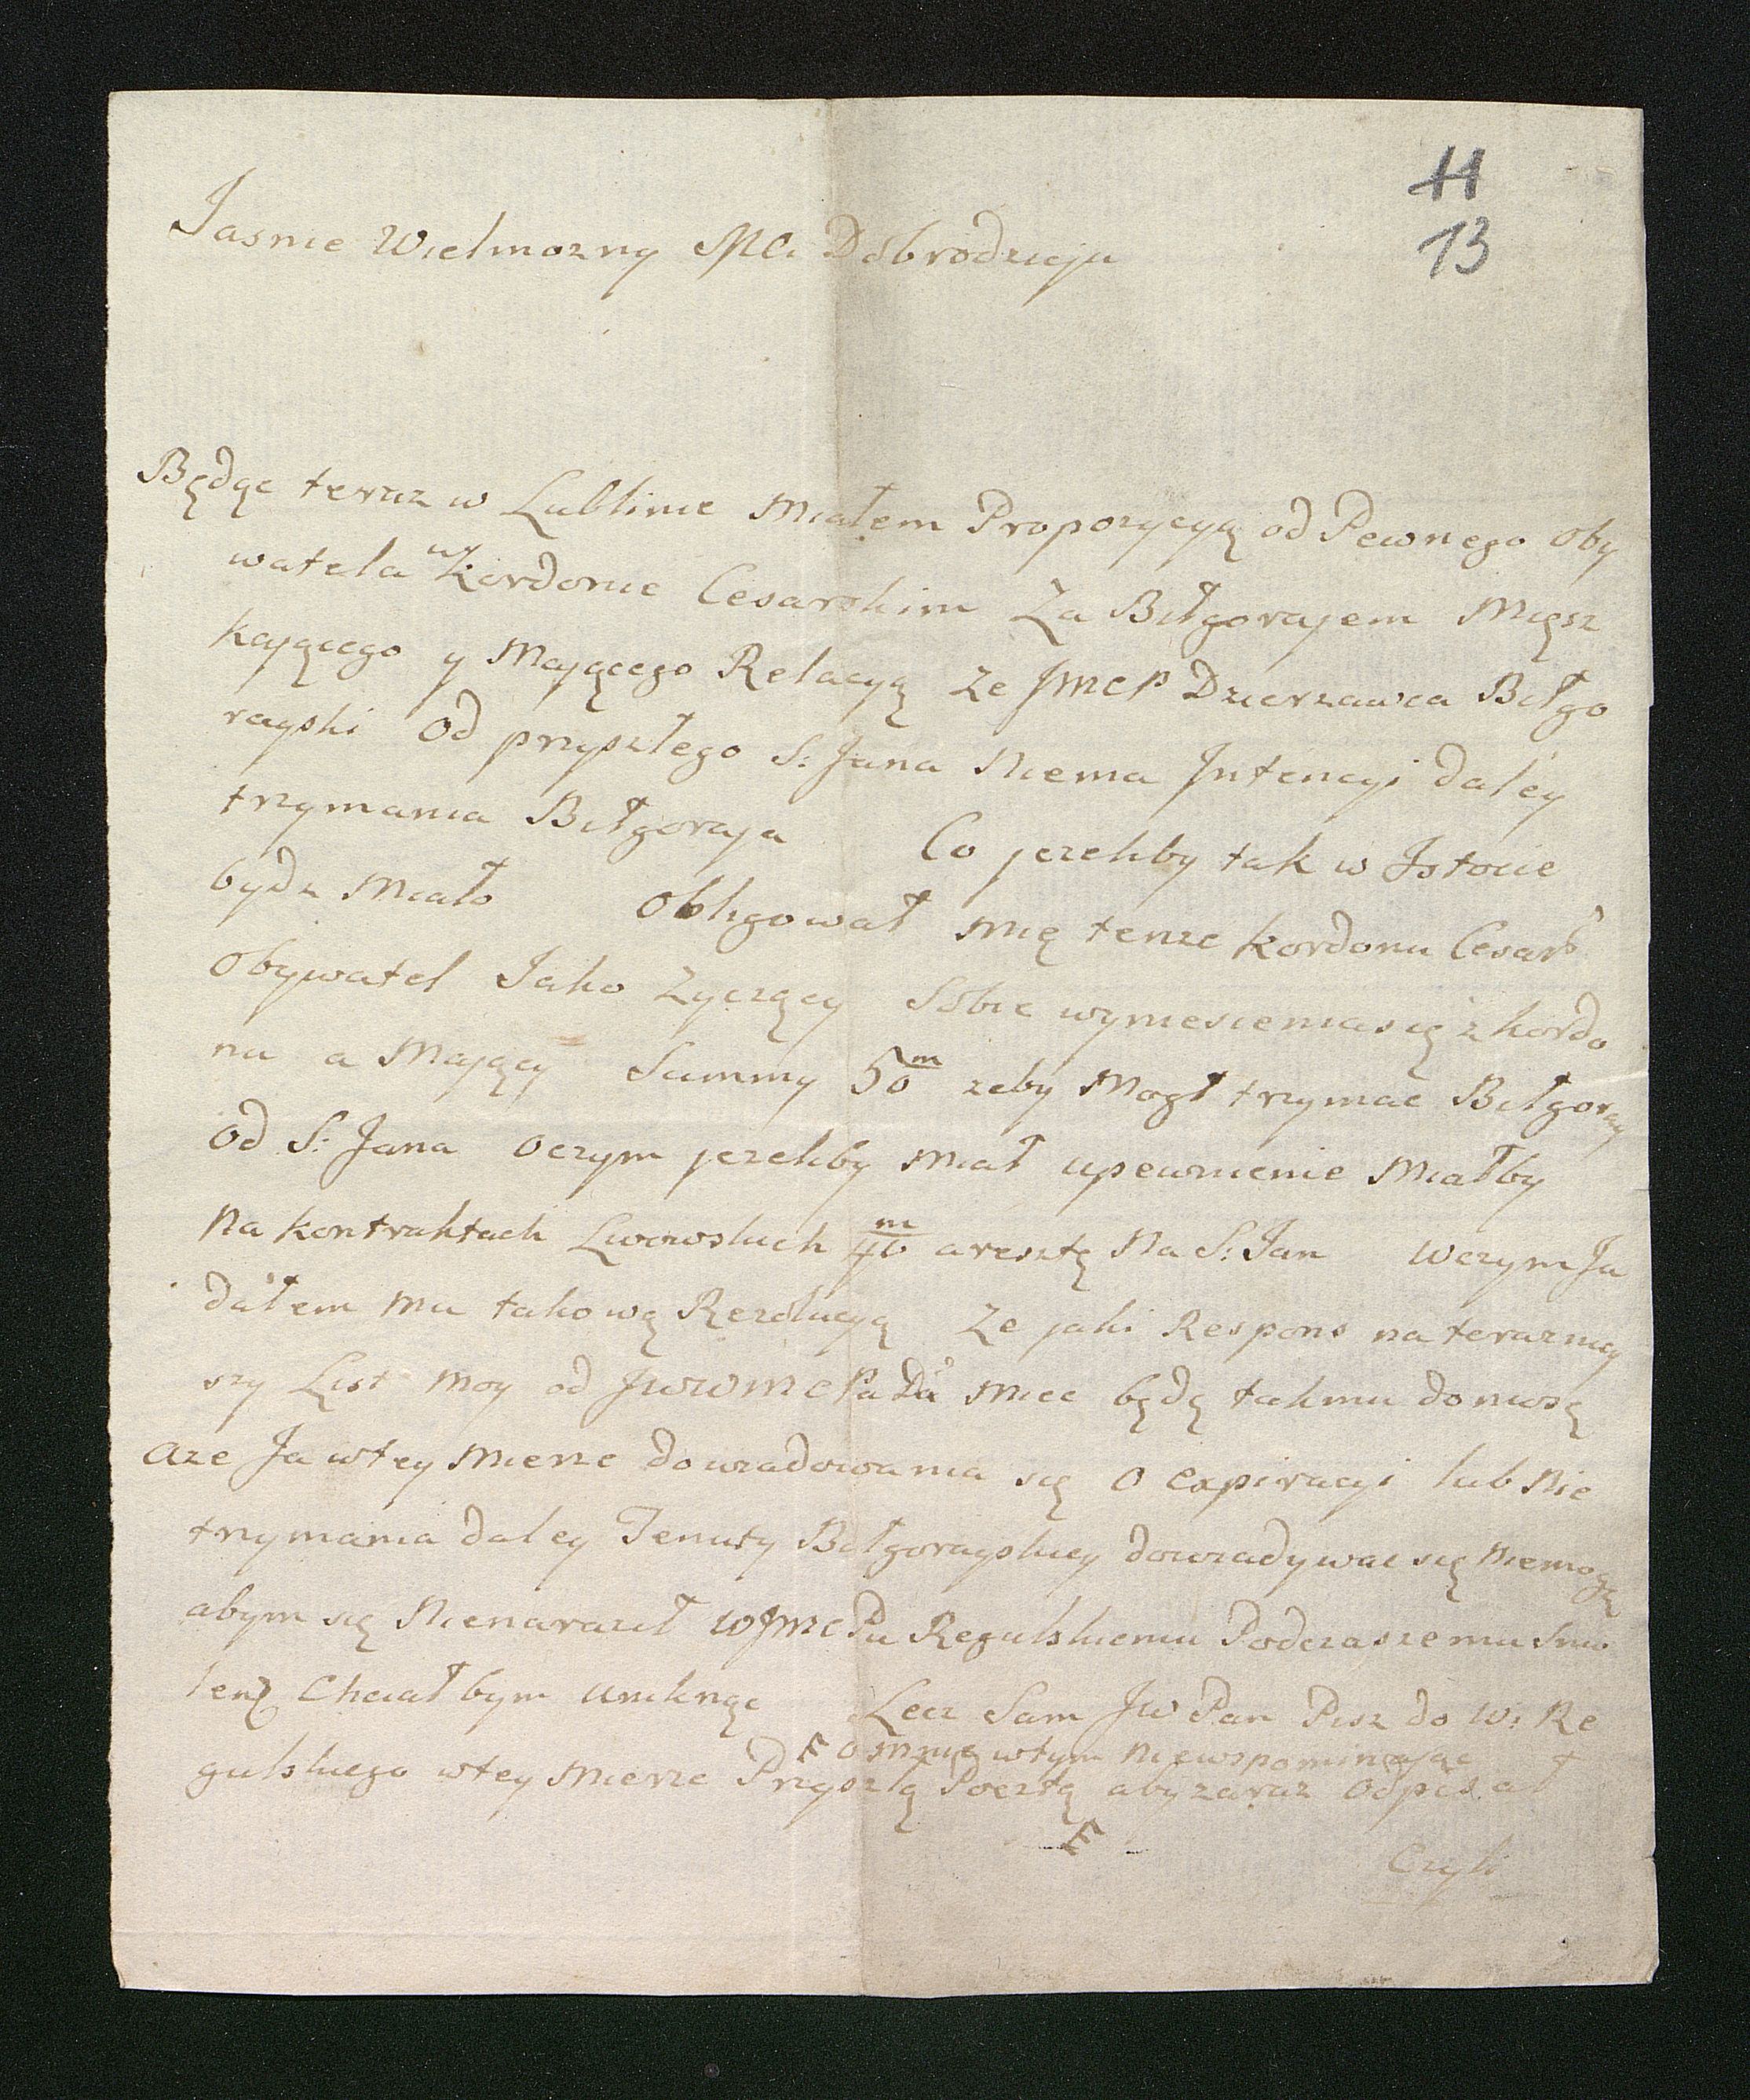 11
13
Jasnie Wielmozny Mci Dobrodzieju
Będąc teraz w Lublinie Miałem Propozycyą od Pewnego Oby
watela w Kordonie Cesarskim Za Biłgorajem Mięsz
kającego y Mającego Relacyą Ze JMCP Dzierzawca Biłgo
rayski Od przyszłego S: Jana Niema Jntencyi daléy
trzymania Biłgoraja Co jezeliby tak w Jstocie
bydz Miało Obligował Mię tenze Kordonu Cesar
Obywatel Jako Zyczący Sobie wyniesienia się z kordo
nu a Mający Summy 50 m zeby Mogł trzymac Biłgoray
Od S: Jana Oczym jezeliby Miał upewnienie Miałby
Na Kontraktach Lwowskich 40 m aresztę Na S: Jan Wczym Ja
dałem Mu takową Rezolucyą Ze jaki Respons na teraznіey
szy List Moy od JWWMCPa Da Miec będę tak mu doniosę
aze Ja wtey Mierze dowiadowania się O Expiracyi lub Nie
trzymania daley Tenuty Biłgorayskiey dowiadywac się Niemogę
abym się Nienaraził WJMCPu Regulskiemu Podczaszemu Smo
lenz Chciałbym uniknąc Lecz Sam JW Pan Pisz do W: Re
F O Mnie wtym Niewspominając
gulskiego wtey Mierze Przyszłą Pocztą aby zaraz Odpisał
F
Czyli